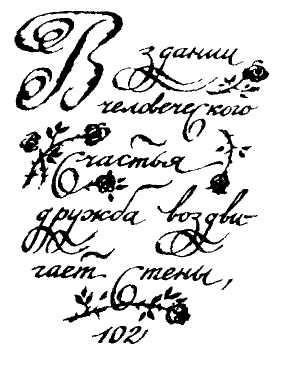 В здании
человеческого
Счастья
дружба воздви-
гает Стены,
102